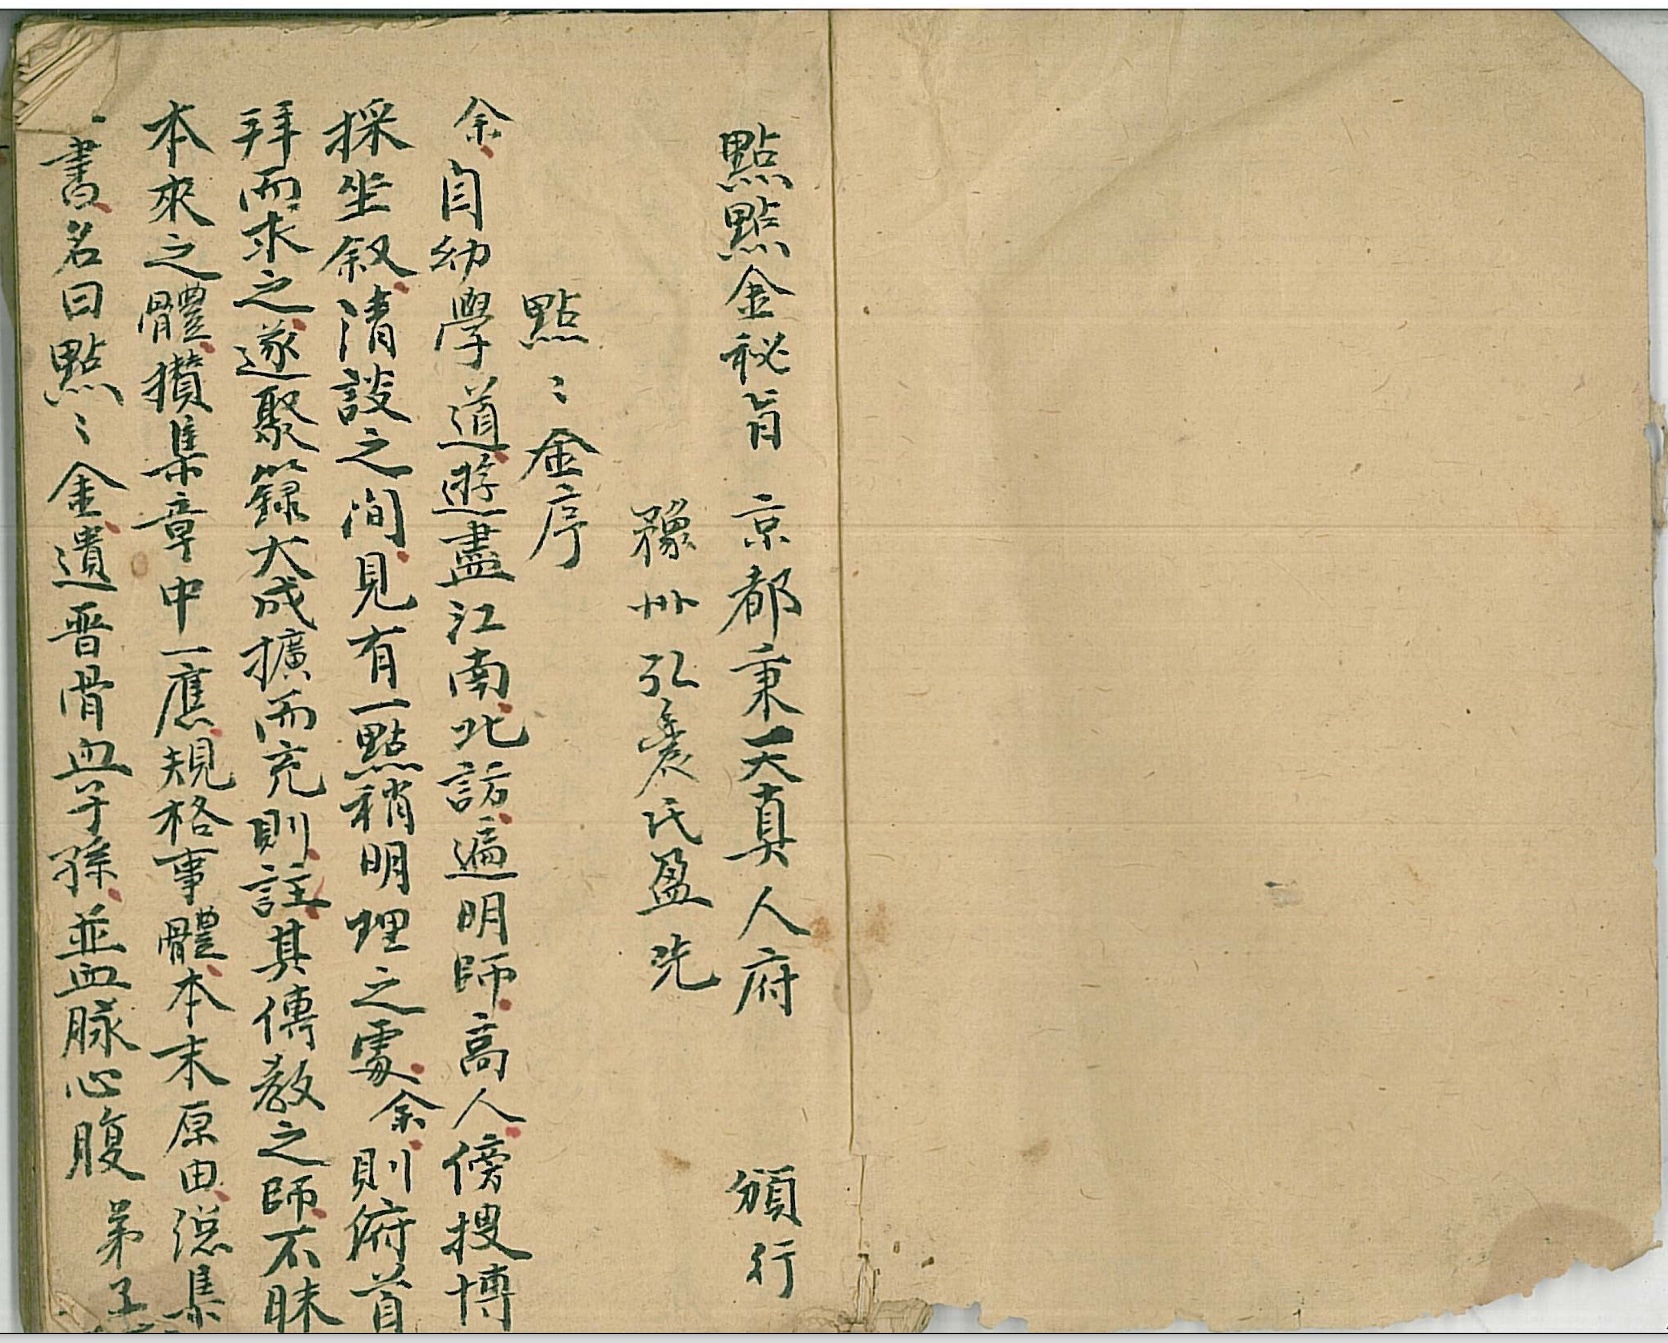 點點金秘旨 京都秉一天真人府 頒行
豫州弘農氏盈洗
點〻金序
余自幼學道遊盡江南北訪遍明師高人傍搜博
採坐叙清談之间見有一點稍明理之處余則俯首
拜而求之遂聚籙大成擴而充則註其傳教之師不昧
本來之體攢集章中一應規格事體本末原由総集
書名曰點〻金遺晋骨血子孫並血脉心腹弟子